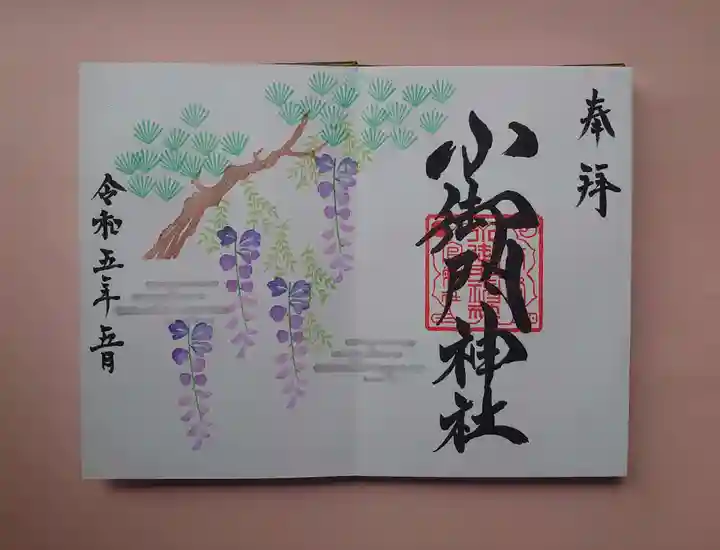 奉拝
小御門神社
令和五年五月